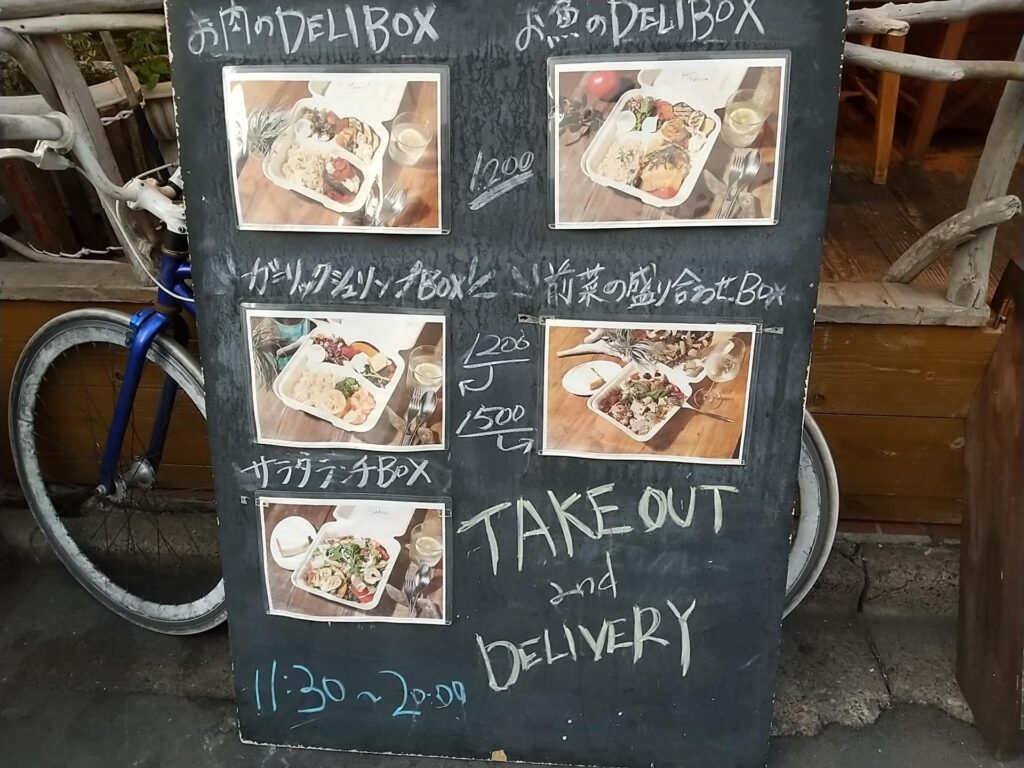 お肉のDELI BOX
お魚のDELI BOX
1200
ガーリックシュリンプBOX
前菜の盛り合わせBOX
1200
1500
サラダランチBOX
TAKE OUT
and
DELIVERY
11:30～20:00